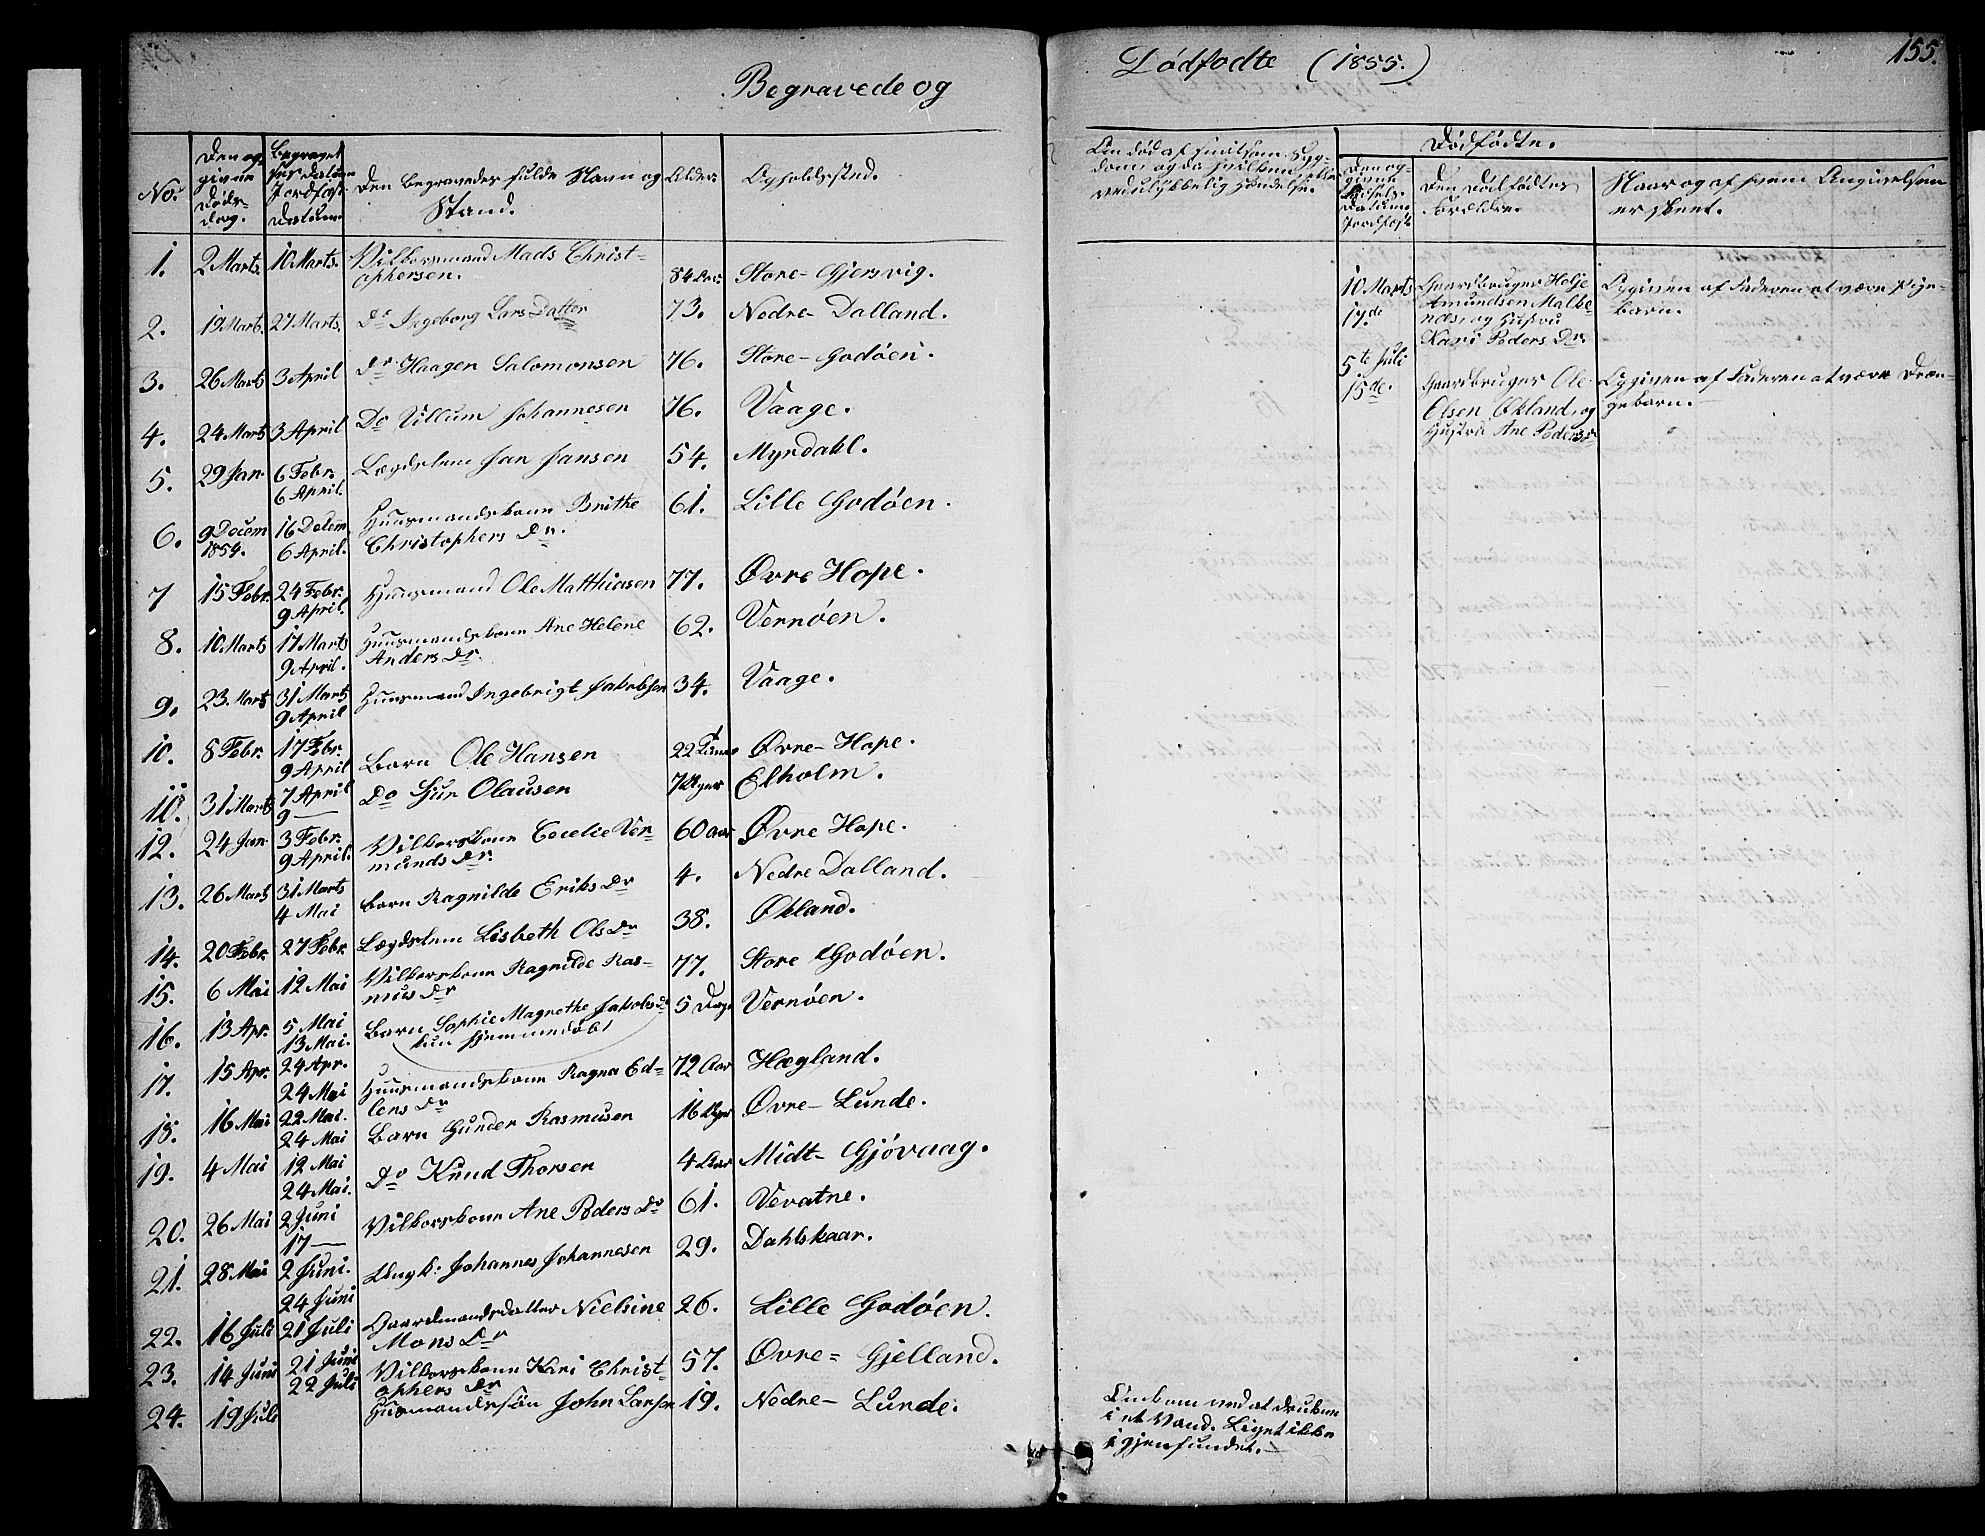 Begravede og
Dødfødte (1855.)
155.
No.
Den op-
givne
Døds-
dag.
Begravet
Jordfæst.
Datum.
Den begravedes fulde Navn og
Stand.
Alder.
Opholdssted.
Dødfødte.
Den Dødfødtes
Forældre.
Naar og af hvem Angivelsen
er skeet.
1. 2 Marts. 10 Marts. Vilkorsmand Mads Christ-
ophersen. 84 Aar. Store-Gjersvig.
2. 19 Marts. 27 Marts. Do Ingeborg Lars Datter 73. Nedre-Dalland.
3. 26 Marts 3 April Do Haagen Salomonsen 76. Store-Godøen.
4. 24 Marts 3 April Do Villum Johannesen 76. Vaage.
5. 29 Jan. 6 Febr.
6 April. Lægdslem Jan Jansen 54. Myrdahl.
6. 9 Decem
1854. 16 Decem
6 April. Huusmandskone Brithe
Christophers Dr. 61. Lille Godøen.
7 15 Febr. 24 Febr.
9 April. Huusmand Ole Matthiasen 77. Øvre Hope.
8. 10 Marts 17 Marts
9 April. Huusmandskone Ane Helene
Anders Dr. 62. Vernøen.
9. 23 Marts 31 Marts
9 April Huusmand Ingebrigt Jakobsen 34. Vaage.
10. 8 Febr. 17 Febr.
9 April Barn Ole Hansen 22 Øvre-Hope.
11. 31 Marts 7 April
9 — Do Gur Olausen 7 Uger Elholm.
12. 24 Jan. 3 Febr.
9 April. Vilkorskone Cecelie Ver-
munds Dr. 60 Aar Øvre Hope.
13. 26 Marts 31 Marts
4 Mai barn Ragnilde Eriks Dr 4. Nedre Dalland.
14. 20 Febr. 27 Febr. Lægdslem Lisbeth Ols Dr 38. Økland.
15. 6 Mai 12 Mai Vilkorskone Ragnilde Ras-
mus Dr 77. Store Godøen.
16. 13 Apr. 5 Mai
13 Mai. Barn Sophie Magrethe Jakobs Dr
kun hjemmedøbt 5 Dage Vernøen.
17. 15 Apr. 24 Apr.
24 Mai Huusmandskone Ragna Ed-
lens Dr 72 Aar Hægland.
18. 16 Mai 22 Mai.
24 Mai Barn Gunder Rasmusen 16 Uger Øvre-Lunde.
19. 4 Mai 12 Mai
24 Mai. Do Knud Thorsen 4 Aar Midt-Gjøvaag.
20. 26 Mai 2 Juni
17 — Vilkorskone Ane Peders Dr 61. Vevatne.
21. 28 Mai 2 Juni.
24 Juni Ungk: Johannes Johannesen 29. Dahlskaar.
22. 16 Juli 21 Juli Gaardmandsdatter Nielsine
Mons Dr 26. Lille Godøen.
23. 14 Juni 21 Juni
22 Juli Vilkorskone Kari Christ-
ophers Dr 57. Øvre-Gjelland.
24. 19 Juli Husmandssøn John Larsen 19. Nedre-Lunde.
Omkom ved at drukne
i et Vand. Liget ikke
igjenfundet.
10 Marts
17de
Gaardbruger Helje
Amundsen Malke-
næs, og Hustru
Kari Peders Dr.
Opgiven af Faderen at være Pige-
barn.
5te Juli
15de.
Gaardbruger Ole
Olsen Økland, og
Hustru Ane Peders Dr
Opgiven af Faderen at være Dren-
gebarn.